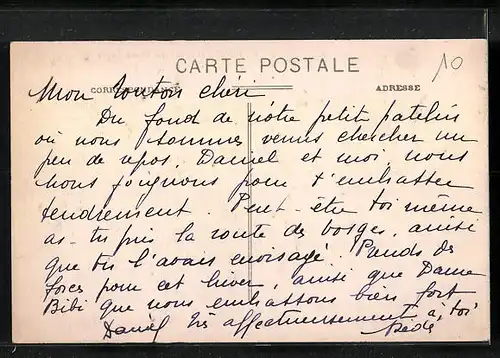 CARTE POSTALE
10
CORRESPONDANCE
ADRESSE
Mon Tonton chéri
Du fond de nôtre petit patelin
où nous sommes venus chercher un
peu de repos, Daniel et moi nous
nous joignons pour t'embrasser
tendrement. Peut-être toi même
as-tu pris la route des Vosges, ainsi
que tu l'avais envisagé. Prends des
forces pour cet hiver, ainsi que Dame
Bibi que nous embrassons bien fort
Daniel très affectueusement à toi